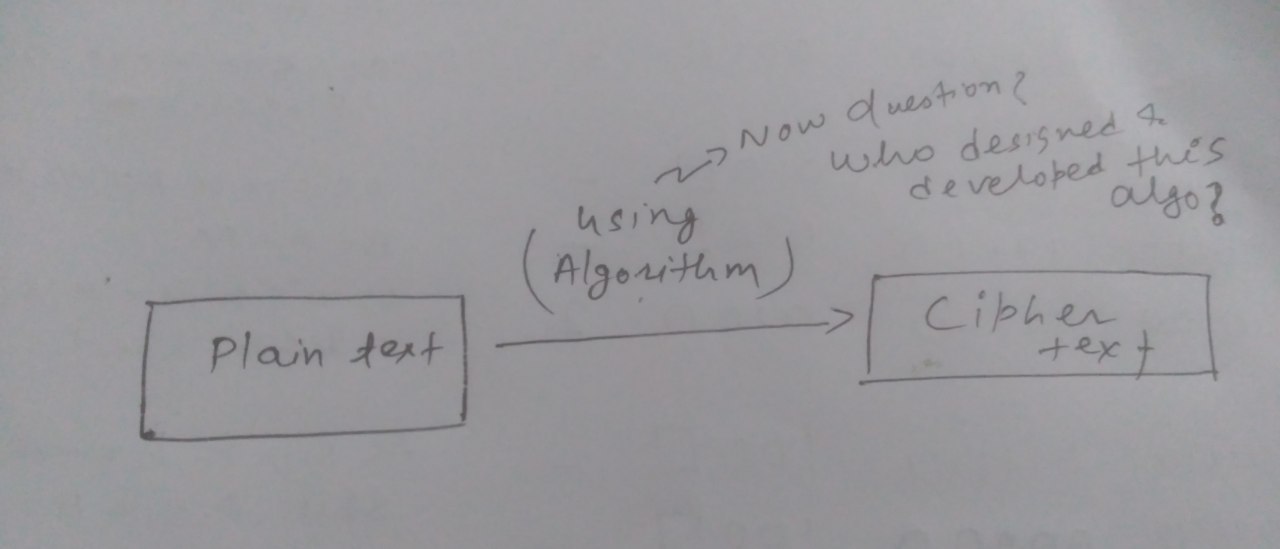 Now Question?
who designed &
developed this
algo?
using
(Algorithm)
Plain text
Cipher
text